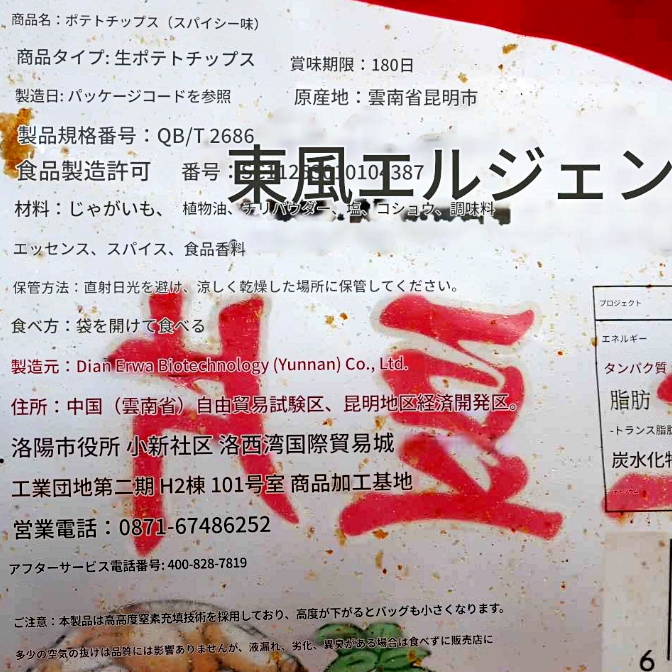 商品名：ポテトチップス（スパイシー味）
商品タイプ: 生ポテトチップス
賞味期限：180日
製造日: パッケージコードを参照
原産地：雲南省昆明市
製品規格番号：QB/T 2686
東風エルジェン
食品製造許可 番号：
材料：じゃがいも、 植物油、チリパウダー、塩、コショウ、調味料
エッセンス、スパイス、食品香料
保管方法：直射日光を避け、涼しく乾燥した場所に保管してください。
食べ方：袋を開けて食べる
製造元：Dian Erwa Biotechnology (Yunnan) Co., Ltd.
住所：中国（雲南省）自由貿易試験区、昆明地区経済開発区。
洛陽市役所 小新社区 洛西湾国際貿易城
工業団地第二期 H2棟 101号室 商品加工基地
営業電話：0871-67486252
アフターサービス電話番号: 400-828-7819
ご注意：本製品は高高度窒素充填技術を採用しており、高度が下がるとバッグも小さくなります。
多少の空気の抜けは品質には影響ありませんが、液漏れ、劣化、異臭がある場合は食べずに販売店に
プロジェクト
エネルギー
タンパク質
脂肪
-トランス脂肪
炭水化物
6